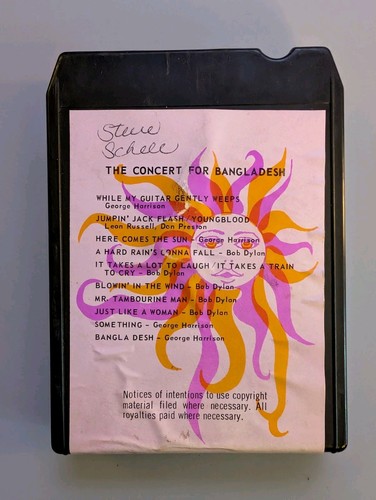 Steve
Schell
THE CONCERT FOR BANGLADESH
WHILE MY GUITAR GENTLY WEEPS
George Harrison
JUMPIN' JACK FLASH/YOUNGBLOOD
Leon Russell, Don Preston
HERE COMES THE SUN - George Harrison
A HARD RAIN'S GONNA FALL - Bob Dylan
IT TAKES A LOT TO LAUGH/IT TAKES A TRAIN
TO CRY - Bob Dylan
BLOWIN' IN THE WIND - Bob Dylan
MR. TAMBOURINE MAN - Bob Dylan
JUST LIKE A WOMAN - Bob Dylan
SOMETHING - George Harrison
BANGLA DESH - George Harrison
Notices of intentions to use copyright
material filed where necessary. All
royalties paid where necessary.